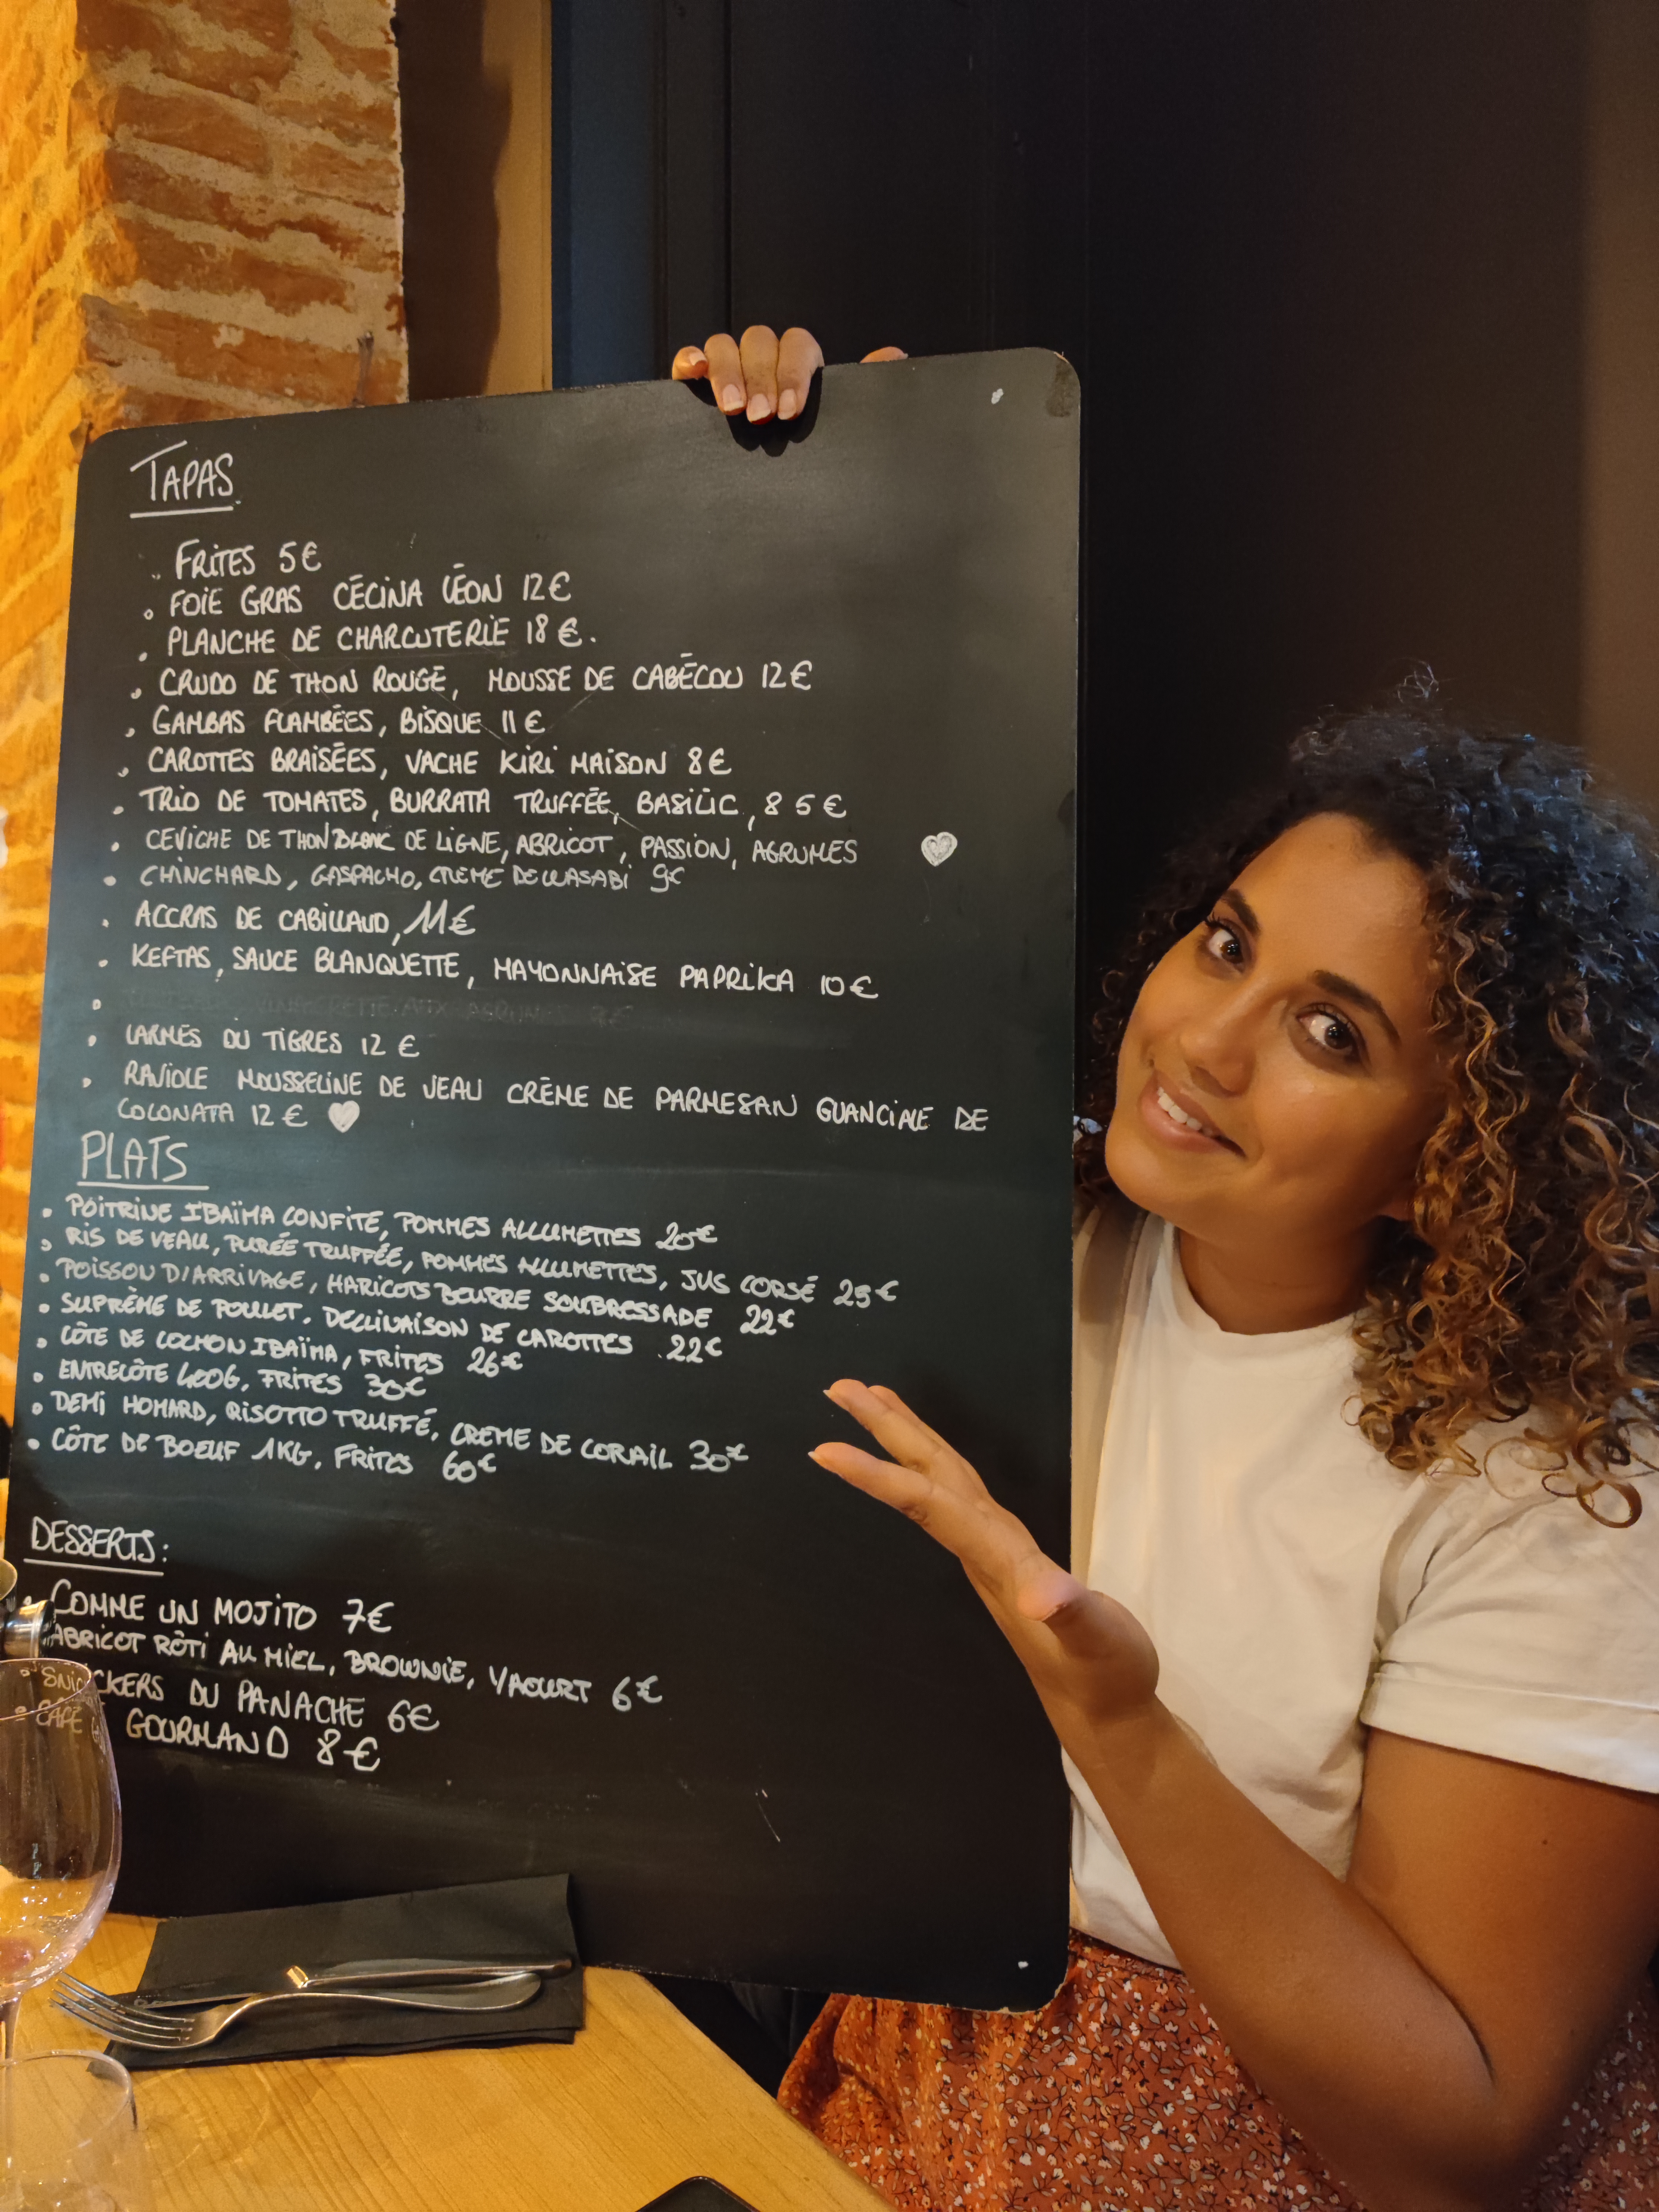 TAPAS
FRITES 5€
FOIE GRAS CÉCINA LÉON 12€
PLANCHE DE CHARCUTERIE 18€.
CRUDO DE THON ROUGE, MOUSSE DE CABÉCOU 12€
GAMBAS FLAMBÉES, BISQUE 11€
CAROTTES BRAISÉES, VACHE KIRI MAISON 8€
TRIO DE TOMATES, BURRATA TRUFFÉE, BASILIC, 8 5€
CEVICHE DE THON BLANC DE LIGNE, ABRICOT, PASSION, AGRUMES
CHINCHARD, GASPACHO, CREME DE WASABI 9€
ACCRAS DE CABILLAUD, 11€
KEFTAS, SAUCE BLANQUETTE, MAYONNAISE PAPRIKA 10€
VINAIGRETTE AUX AGRUMES
LARMES DU TIGRES 12€
RAVIOLE MOUSSELINE DE VEAU CRÈME DE PARMESAN GUANCIALE DE
COLONATA 12€
PLATS
POITRINE IBAÏMA CONFITE, POMMES ALLUMETTES 20€
RIS DE VEAU, PURÉE TRUFFÉE, POMMES ALLUMETTES, JUS CORSÉ 25€
POISSON D'ARRIVAGE, HARICOTS BEURRE SOUBRESSADE 22€
SUPRÊME DE POULET, DECLINAISON DE CAROTTES 22€
CÔTE DE COCHON IBAÏMA, FRITES 26€
ENTRECÔTE 400G, FRITES 30€
DEMI HOMARD, RISOTTO TRUFFÉ, CREME DE CORAIL 30€
CÔTE DE BOEUF 1KG, FRITES 60€
DESSERTS:
COMME UN MOJITO 7€
ABRICOT RÔTI AU MIEL, BROWNIE, YAOURT 6€
SNICKERS DU PANACHE 6€
CAFÉ GOURMAND 8€